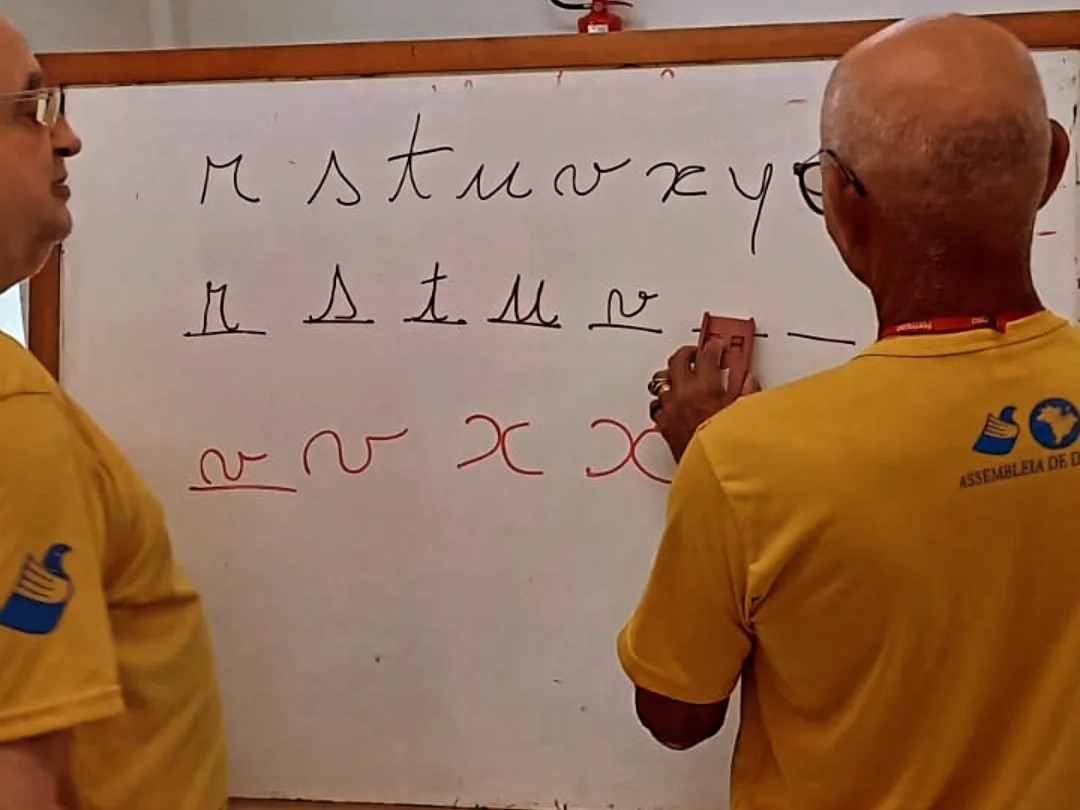 r s t u v x y
r s t u v
v v x x
ASSEMBLEIA DE D